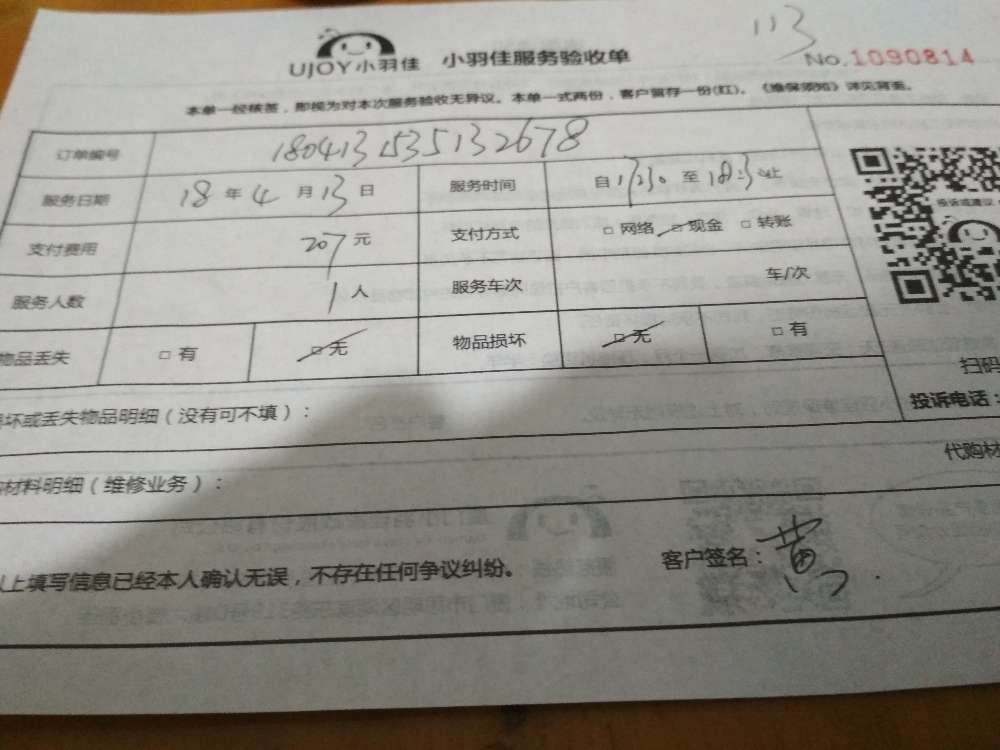 113
UJOY小羽佳 小羽佳服务验收单 No.1090814
本单一经核签，即视为对本次服务验收无异议。本单一式两份，客户留存一份(红)。《维保须知》详见背面。
订单编号 1804131535132678
服务日期 18年4月13日 服务时间 自 至
支付费用 207元 支付方式 □ 网络 □ 现金 □ 转账
服务人数 1人 服务车次 车/次
物品丢失 □ 有 □ 无 物品损坏 □ 无 □ 有
投诉或建议
扫码
坏或丢失物品明细（没有可不填）：
投诉电话：
材料明细（维修业务）：
代购材
以上填写信息已经本人确认无误，不存在任何争议纠纷。 客户签名：黄